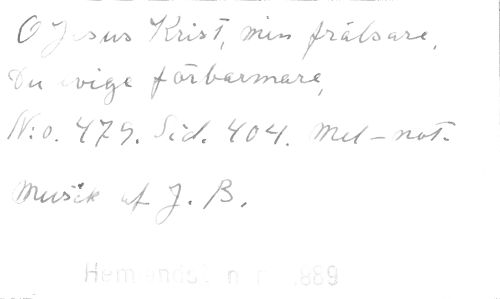 O Jesus Krist, min frälsare,
Du evige förbarmare,
N:o. 479. Sid. 404. Mel-not.
Musik af J. B.